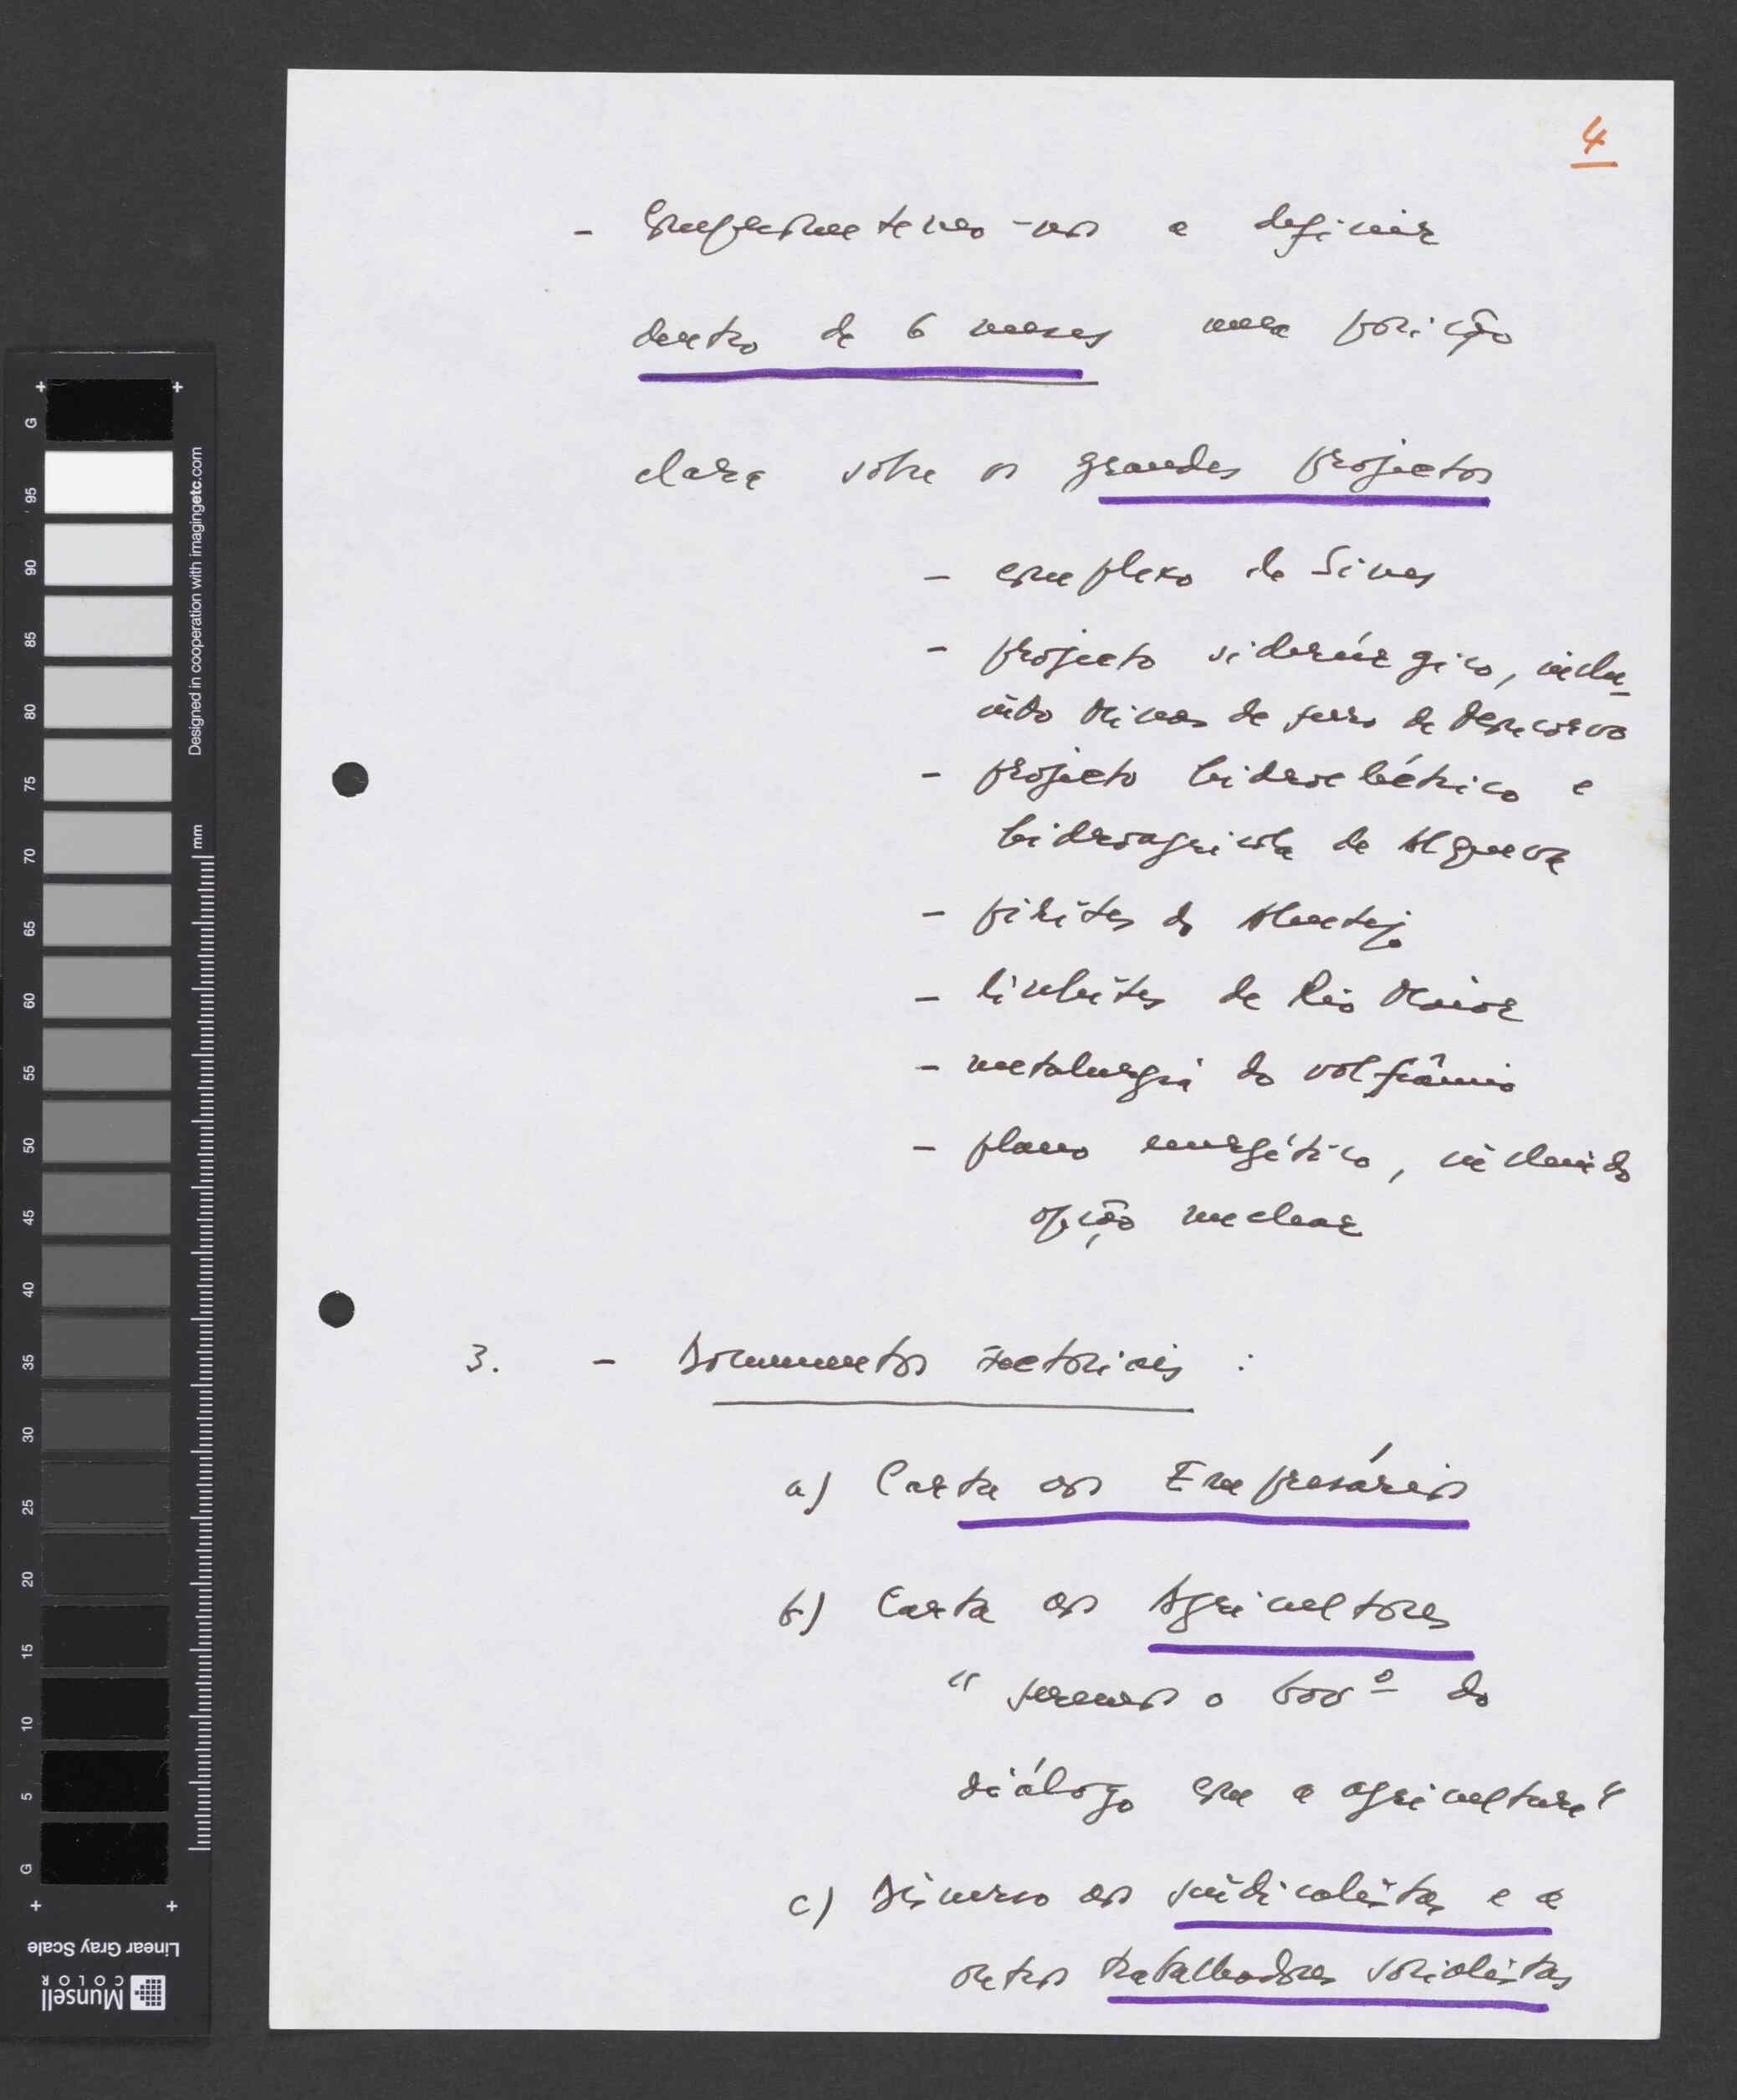 4
- Comprometemo-nos a definir
dentro de 6 meses uma posição
clara sobre os grandes projectos
- complexo de Sines
- projecto siderúrgico, inclu-
indo Minas de ferro de Moncorvo
- projecto hidroeléctrico e
hidroagrícola de Alqueva
- pirites do Alentejo
- linhites de Rio Maior
- metalurgia do volfrâmio
- plano energético, incluindo
opção nuclear
3. - Documentos sectoriais :
a) Carta aos Empresários
b) Carta aos Agricultores
" seremos o Govº do
diálogo com a agricultura"
c) Discurso aos sindicalistas e a
outros trabalhadores socialistas
G 95 90 85 80 75 70 65 60 55 50 45 40 35 30 25 20 15 10 5 G
Designed in cooperation with imagingetc.com
mm
Linear Gray Scale
Munsell
COLOR